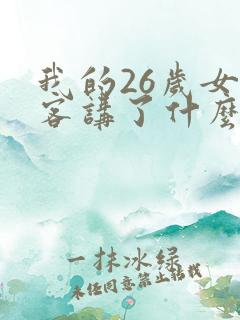 我的26歲女
客講了什麼
一抹冰綠
未经同意禁止搭载